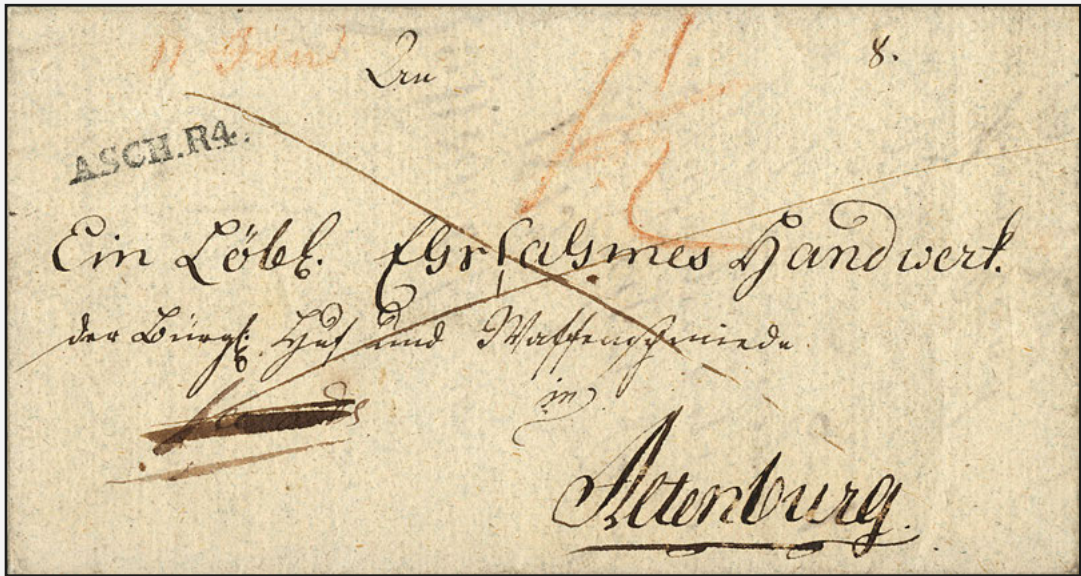 11 Jänn
Den
8.
ASCH.R4.
1/2
Ein Löbl. Ehrsahmes Handwerk.
der Bürgl. Huf und Waffenschmiede
in
Altenburg.